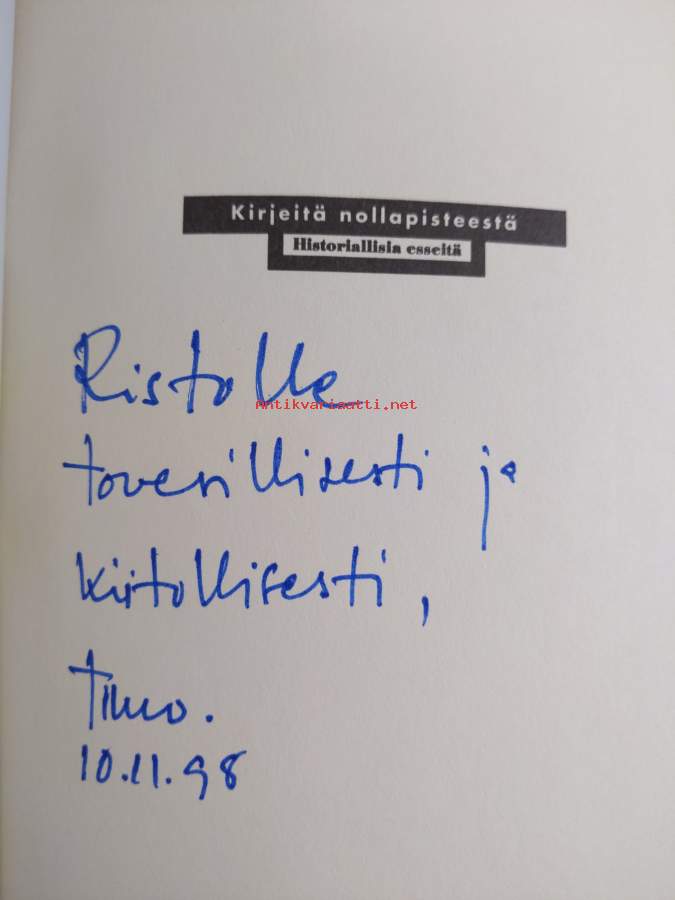 Kirjeitä nollapisteestä
Historiallisia esseitä
Ristolle
antikvariaatti.net
toverillisesti ja
kiitollisesti,
Timo.
10.11.98